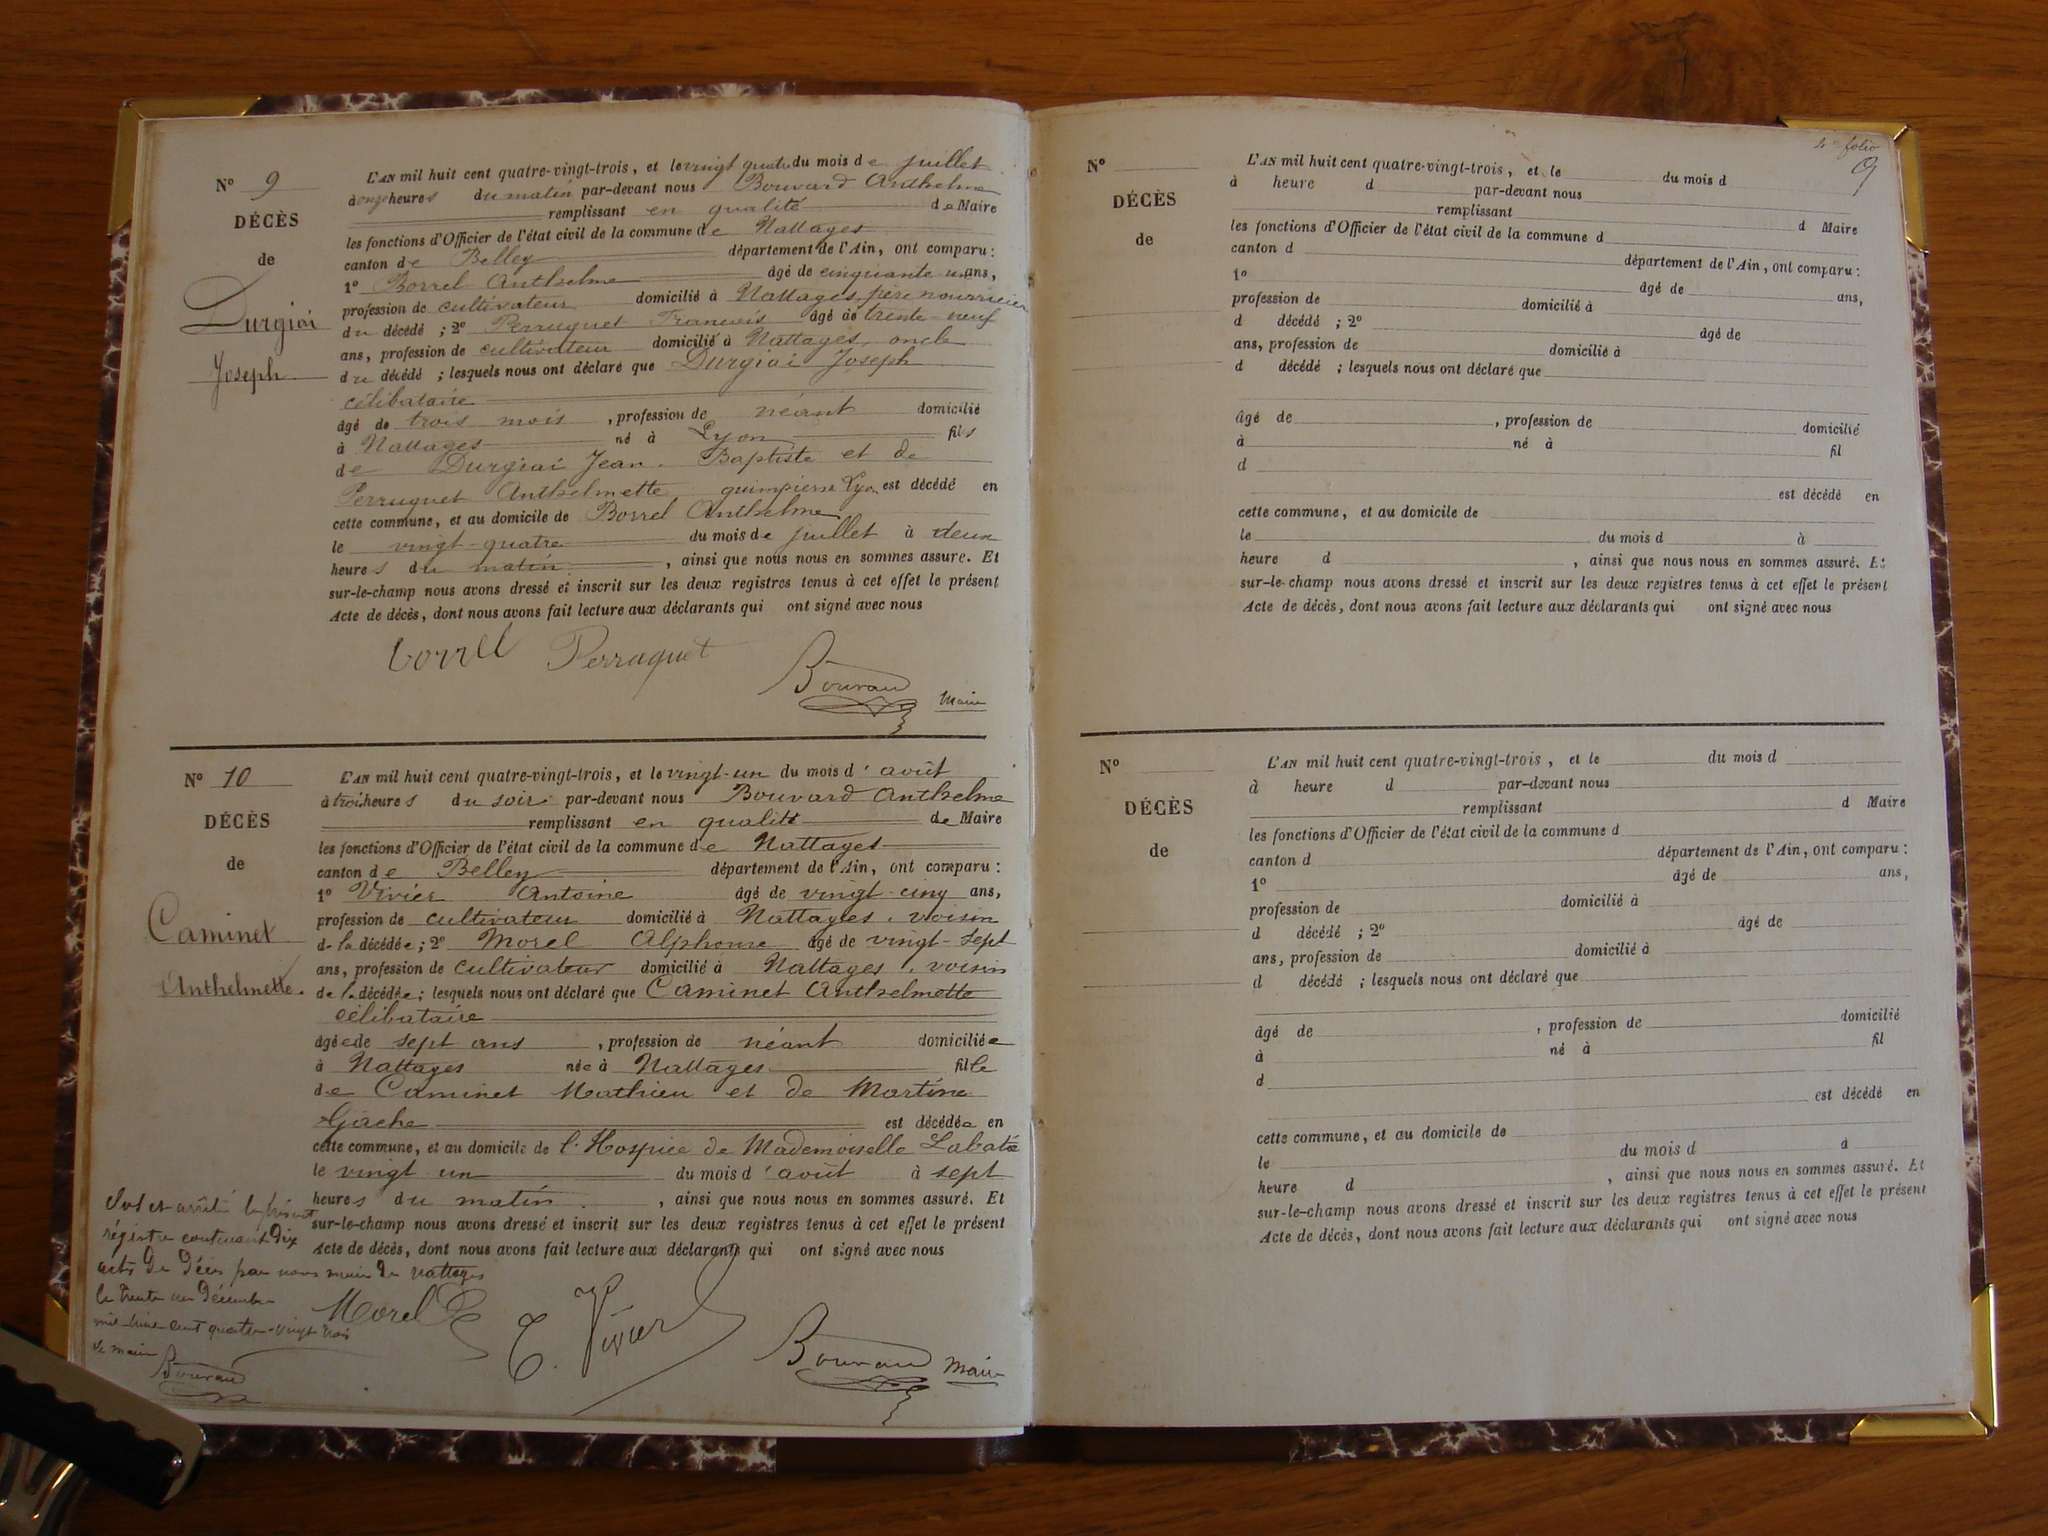 N° 9
DÉCÈS
de
Durgiai
Joseph
L'AN mil huit cent quatre-vingt-trois, et le vingt quatre du mois de juillet
à onze heures du matin par-devant nous Bouvard Anthelme
remplissant en qualité de Maire
les fonctions d'Officier de l'état civil de la commune de Nattages
canton de Belley département de l'Ain, ont comparu :
1° Borrel Anthelme âgé de cinquante un ans,
profession de cultivateur domicilié à Nattages, père nourricier
du décédé ; 2° Perruquet François âgé de trente-neuf
ans, profession de cultivateur domicilié à Nattages, oncle
du décédé ; lesquels nous ont déclaré que Durgiai Joseph
célibataire
âgé de trois mois , profession de néant domicilié
à Nattages né à Lyon fils
de Durgiai Jean-Baptiste et de
Perruquet Anthelmette Lyon est décédé en
cette commune, et au domicile de Borrel Anthelme
le vingt-quatre du mois de juillet à deux
heures du matin , ainsi que nous nous en sommes assuré. Et
sur-le-champ nous avons dressé et inscrit sur les deux registres tenus à cet effet le présent
Acte de décès, dont nous avons fait lecture aux déclarants qui ont signé avec nous
borrel Perraquet
Bouvard Maire
N° 10
DÉCÈS
de
Caminet
Anthelmette.
L'AN mil huit cent quatre-vingt-trois, et le vingt-un du mois d'août
à trois heures du soir par-devant nous Bouvard Anthelme
remplissant en qualité de Maire
les fonctions d'Officier de l'état civil de la commune de Nattages
canton de Belley département de l'Ain, ont comparu :
1° Vivier Antoine âgé de vingt-cinq ans,
profession de cultivateur domicilié à Nattages, voisin
de la décédée ; 2° Morel Alphonse âgé de vingt-sept
ans, profession de cultivateur domicilié à Nattages, voisin
de la décédée ; lesquels nous ont déclaré que Caminet Anthelmette
célibataire
âgée de sept ans , profession de néant domiciliée
à Nattages née à Nattages fille
de Caminet Mathieu et de Martine
Gâche est décédée en
cette commune, et au domicile de l'Hospice de Mademoiselle Labatie
le vingt un du mois d'août à sept
heures du matin , ainsi que nous nous en sommes assuré. Et
sur-le-champ nous avons dressé et inscrit sur les deux registres tenus à cet effet le présent
Acte de décès, dont nous avons fait lecture aux déclarants qui ont signé avec nous
Clos et arrêté le présent
régistre contenant Dix
actes de Décès par nous maire de Nattages
le trente un Décembre
mil-huit-cent quatre-vingt trois
Le maire
Bouvard
Morel
Vivier
Bouvard Maire
folio
9
N°
DÉCÈS
de
L'AN mil huit cent quatre-vingt-trois, et le du mois d
à heure d par-devant nous
remplissant d Maire
les fonctions d'Officier de l'état civil de la commune d
canton d département de l'Ain, ont comparu :
1° âgé de ans,
profession de domicilié à
d décédé ; 2° âgé de
ans, profession de domicilié à
d décédé ; lesquels nous ont déclaré que
âgé de , profession de domicilié
à né à fil
d
est décédé en
cette commune, et au domicile de
le du mois d à
heure d , ainsi que nous nous en sommes assuré. Et
sur-le-champ nous avons dressé et inscrit sur les deux registres tenus à cet effet le présent
Acte de décès, dont nous avons fait lecture aux déclarants qui ont signé avec nous
N°
DÉCÈS
de
L'AN mil huit cent quatre-vingt-trois, et le du mois d
à heure d par-devant nous
remplissant d Maire
les fonctions d'Officier de l'état civil de la commune d
canton d département de l'Ain, ont comparu :
1° âgé de ans,
profession de domicilié à
d décédé ; 2° âgé de
ans, profession de domicilié à
d décédé ; lesquels nous ont déclaré que
âgé de , profession de domicilié
à né à fil
d
est décédé en
cette commune, et au domicile de
le du mois d à
heure d , ainsi que nous nous en sommes assuré. Et
sur-le-champ nous avons dressé et inscrit sur les deux registres tenus à cet effet le présent
Acte de décès, dont nous avons fait lecture aux déclarants qui ont signé avec nous